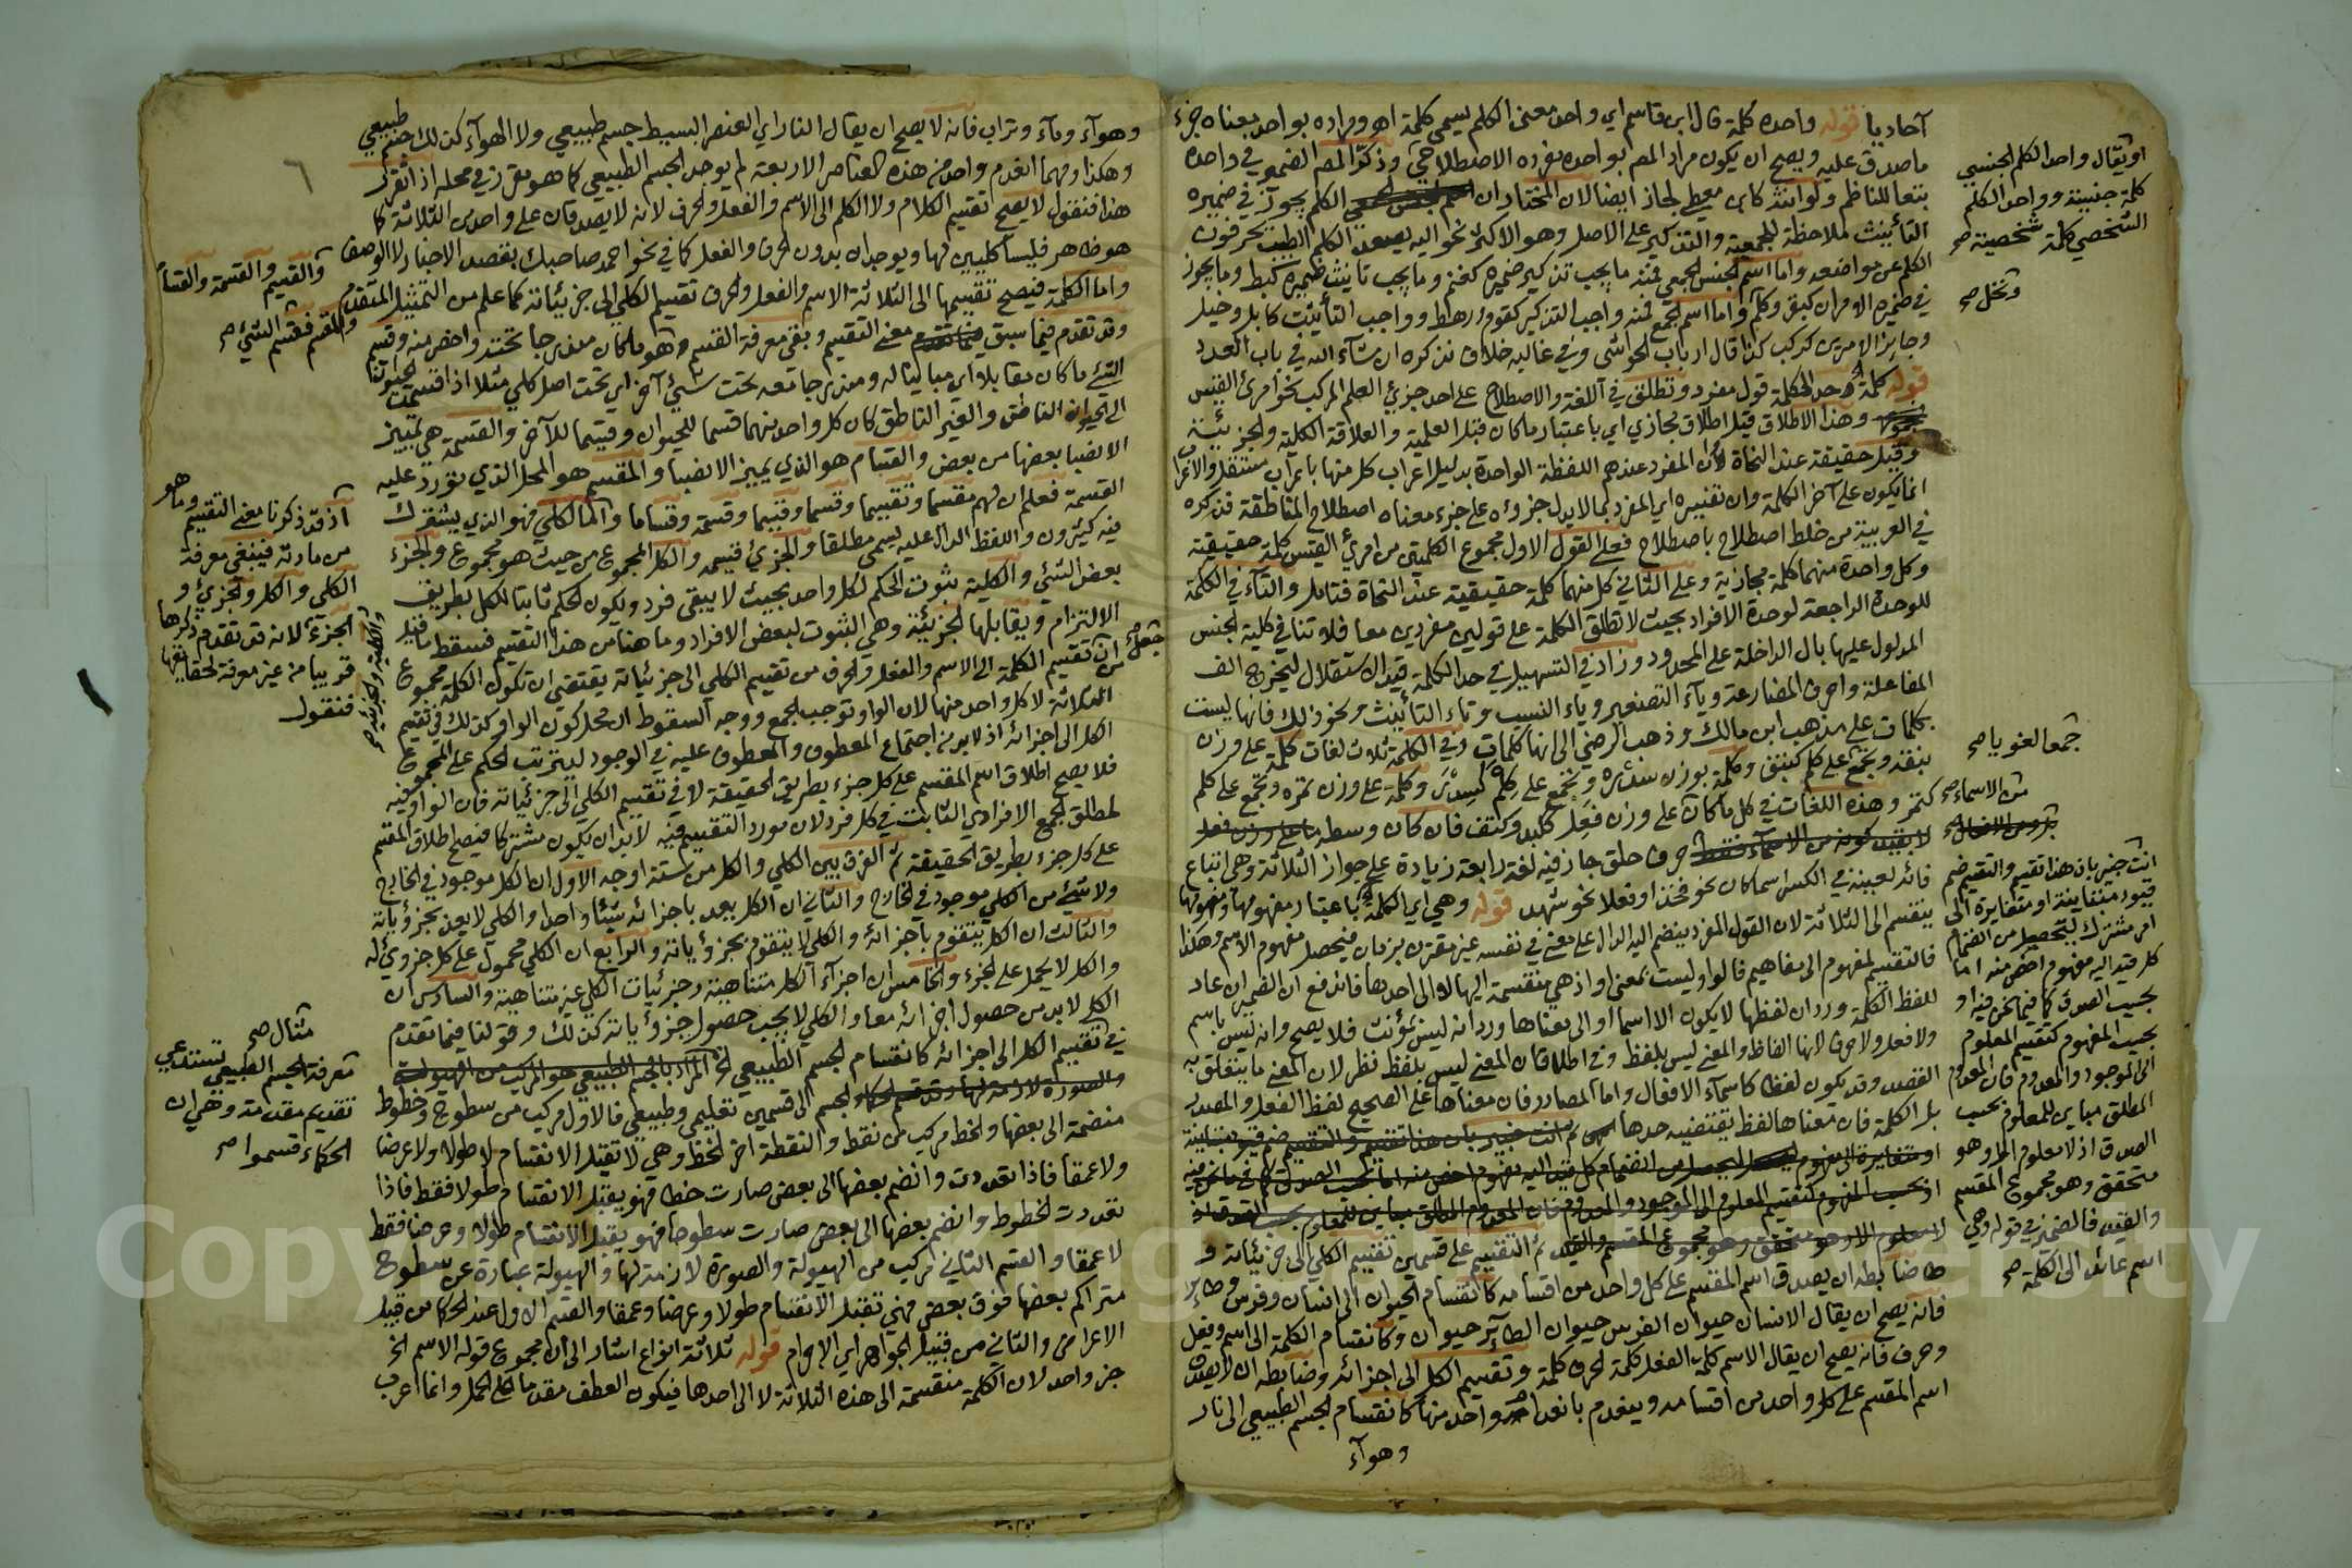 آحاديا قوله واحده كلمة قال ابن قاسم اي واحد معنى الكلم يسمى كلمة اهـ ومراده بواحد معناه جزء
ما صدق عليه ويصح ان يكون مراد المصـ بواحده مفرده الاصطلاحي وذكر المصـ الضمير في واحده
تبعا للناظم ولو انث كابن معطي لجاز ايضا لان المختار ان الكلم يجوز في ضميره
التأنيث ملاحظة للجمعية والتذكير على الاصل وهو الاكثر نحو اليه يصعد الكلم الطيب يحرفون
الكلم عن مواضعه واما اسم الجنس الجمعي فمنه ما يجب تذكير ضميره كغنم وما يجب تأنيث ضميره كبط وما يجوز
في ضميره الامران كبقر وكلم واما اسم الجمع فمنه واجب التذكير كقوم ورهط وواجب التأنيث كابل وخيل
وجايز الامرين كركب كذا قال ارباب الحواشي وفي غالبه خلاف نذكره ان شآء الله في باب العدد
قوله كلمة حد الكلمة قول مفرد وتطلق في اللغة والاصطلاح على احد جزئي العلم المركب نحو امرئ القيس
وهذا الاطلاق قيل اطلاق مجازي اي باعتبار ما كان قبل العلمية والعلاقة الكلية والجزئية
وقيل حقيقة عند النحاة لأن المفرد عندهم اللفظة الواحدة بدليل اعراب كل منها باعراب مستقل والاعراب
انما يكون على آخر الكلمة وان تفسيره اي المفرد بما لا يدل جزوه على جزء معناه اصطلاح المناطقة فذكره
في العربية من خلط اصطلاح باصطلاح فعلى القول الاول مجموع الكلمتين من امرئ القيس كلمة حقيقية
وكل واحدة منهما كلمة مجازية وعلى الثاني كل منهما كلمة حقيقية عند النحاة فتامل والتآء في الكلمة
للوحدة الراجعة لوحدة الافراد بحيث لا تطلق الكلمة على قولين مفردين معا فلا تنافي كلية الجنس
المدلول عليها بال الداخلة على المحدود وزاد في التسهيل في حد الكلمة قيد الاستقلال ليخرج الف
المفاعلة واحرف المضارعة ويآء التصغير وياء النسب وتاء التأنيث ونحو ذلك فانها ليست
بكلمات على مذهب ابن مالك وذهب الرضي الى انها كلمات وفي الكلمة ثلاث لغات كلمة على وزن
نبقة وتجمع على كلم كنبق وكلمة بوزن سدرة وتجمع على كلم كسدر وكلمة على وزن تمرة وتجمع على كلم
كتمر وهذه اللغات في كل ما كان على وزن فعل ككبد وكتف فان كان وسطه
حرف حلق جاز فيه لغة رابعة زيادة على جواز الثلاثة وهي اتباع
فائه لعينه في الكسر اسما كان نحو فخذ او فعلا نحو شهد قوله وهي اي الكلمة باعتبار مفهومها ومفهومها
ينقسم الى الثلاثة لان القول المفرد ينضم اليه الدال على معنى في نفسه غير مقترن بزمان فيحصل مفهوم الاسم وهكذا
فالتقسيم لمفهوم الى مفاهيم فالواو ليست بمعنى او اذ هي منقسمة اليها لا الى احدها فاندفع ان الضمير ان عاد
للفظ الكلمة ورد ان لفظها لا يكون الا اسما او الى معناها ورد انه ليس بمؤنث فلا يصح وانه ليس باسم
ولا فعل ولا حرف لانها الفاظ والمعنى ليس بلفظ وفي اطلاقه ان المعنى ليس بلفظ نظر لان المعنى ما يتعلق به
القصد وقد يكون لفظا كاسمآء الافعال واما المصادر فان معناها على الصحيح لفظ الفعل والمصدر
بل الكلمة فان معناها لفظ يقتضيه حدها
ثم التقسيم على قسمين تقسيم الكلي الى جزئياته و
ضابطه ان يصدق اسم المقسم على كل واحد من اقسامه كانقسام الحيوان الى انسان وفرس وطاير
فانه يصح ان يقال الانسان حيوان الفرس حيوان الطآير حيوان وكانقسام الكلمة الى اسم وفعل
وحرف فانه يصح ان يقال الاسم كلمة الفعل كلمة الحرف كلمة وتقسيم الكل الى اجزائه وضابطه ان لا يصدق
اسم المقسم على كل واحد من اقسامه وينعدم بانعدام واحد منها كانقسام الجسم الطبيعي الى نار
وهوآء
او يقال واحد الكلم الجنسي
كلمة جنسية وواحد الكلم
الشخصي كلمة شخصية صح
ونخل صح
جمعا لغويا صح
من الاسماء صح
انت خبير بان هذا تقسيم والتقسيم ضم
قيود متباينة او متغايرة الى
امر مشترك ليتحصل من انضمام
كل قيد اليه مفهوم اخص منه اما
بحسب الصدق كما فيما نحن فيه او
بحسب المفهوم كتقسيم المعلوم
الى الموجود والمعدوم فان المعدوم
المطلق مباين للمعلوم بحسب
الصدق اذ لا معلوم الا وهو
متحقق وهو مجموع المقسم
والقيد فالضمير في قوله وهي
اسم عائد الى الكلمة صح
٦
وهوآء ومآء وتراب فانه لا يصح ان يقال النار اي العنصر البسيط جسم طبيعي ولا الهوآء كذلك جسم طبيعي
وهكذا ومهما انعدم واحد من هذه العناصر الاربعة لم يوجد الجسم الطبيعي كما هو مقرر في محله اذا تقرر
هذا فنقول لا يصح تقسيم الكلام ولا الكلم الى الاسم والفعل والحرف لانه لا يصدقان على واحد من الثلاثة كما
هو ظاهر فليسا كليين لها ويوجدان بدون الحرف والفعل كما في نحو احمد صاحبك بقصد الاخبار لا الوصف
واما الكلمة فيصح تقسيمها الى الثلاثة الاسم والفعل والحرف تقسيم الكلي الى جزئياته كما علم من التمثيل المتقدم
وقد تقدم فيما سبق معنى التقسيم وبقي معرفة القسم وهو ما كان مندرجا تحته واخص منه وقسيم
الشئ ما كان مقابلا اي مباينا له ومندرجا معه تحت شئ آخر اي تحت اصل كلي مثلا اذا قسمت الحيوان
الى الحيوان الناطق والغير الناطق كان كل واحد منهما قسما للحيوان وقسيما للآخر والقسمة هي تمييز
الانصبا بعضها من بعض والقسام هو الذي يميز الانصبا والمقسم هو المحل الذي تورد عليه
القسمة فعلم ان لهم مقسما وتقسيما وقسما وقسيما وقسمة وقساما واما الكلي فهو الذي يشترك
فيه كثيرون واللفظ الدال عليه يسمى مطلقا والجزئي قسيمه والكل المجموع من حيث هو مجموع والجزء
بعض الشئ والكلية ثبوت الحكم لكل واحد بحيث لا يبقى فرد ويكون الحكم ثابتا للكل بطريق
الالتزام ويقابلها الجزئية وهي الثبوت لبعض الافراد وما هنا من هذا التقسيم فسقط ما قيل
من ان تقسيم الكلمة الى الاسم والفعل والحرف من تقسيم الكلي الى جزئياته يقتضي ان تكون الكلمة مجموع
الثلاثة لا كل واحد منها لان الواو توجب الجمع ووجه السقوط ان محل كون الواو كذلك في تقسيم
الكل الى اجزائه اذ لا بد من اجتماع المعطوف والمعطوف عليه في الوجود ليترتب الحكم على المجموع
فلا يصح اطلاق اسم المقسم على كل جزء بطريق الحقيقة لا في تقسيم الكلي الى جزئياته فان الواو فيه
لمطلق الجمع الافرادي الثابت في كل فرد لان مورد التقسيم فيه لا بد ان يكون مشتركا فيصح اطلاق المقسم
على كل جزء بطريق الحقيقة ثم الفرق بين الكلي والكل من ستة اوجه الاول ان الكل موجود في الخارج
ولا شئ من الكلي موجود في الخارج والثاني ان الكل يعد باجزائه شيئا واحدا والكلي لا يعد بجزؤياته
والثالث ان الكل يتقوم باجزائه والكلي لا يتقوم بجزؤياته والرابع ان الكلي محمول على كل جزوي له
والكل لا يحمل على الجزء والخامس ان اجزآء الكل متناهية وجزئيات الكلي غير متناهية والسادس ان
الكل لا بد من حصول اجزائه معا والكلي لا يجب حصول جزؤياته كذلك وقولنا فيما تقدم
في تقسيم الكل الى اجزائه كانقسام الجسم الطبيعي الخ المراد بالجسم الطبيعي هو المركب من الهيولة
والصورة لازمة لها وقد قسم الحكماء الجسم الى قسمين تعليمي وطبيعي فالاول مركب من سطوح وخطوط
منضمة الى بعضها والخط مركب من نقط والنقطة اخر الخط وهي لا تقبل الانقسام لا طولا ولا عرضا
ولا عمقا فاذا تعددت وانضم بعضها الى بعض صارت خطا فهو يقبل الانقسام طولا فقط فاذا
تعددت الخطوط وانضم بعضها الى بعض صارت سطوحا فهو يقبل الانقسام طولا وعرضا فقط
لا عمقا والقسم الثاني مركب من الهيولة والصورة لازمة لها والهيولة عبارة عن سطوح
متراكم بعضها فوق بعض فهي تقبل الانقسام طولا وعرضا وعمقا والقسم الاول عند الحكما من قبيل
الاعراض والثاني من قبيل الجواهر اي الاجرام قوله ثلاثة انواع اشار الى ان مجموع قوله الاسم الخ
جزء واحد لان الكلمة منقسمة الى هذه الثلاثة لا الى احدها فيكون العطف مقدما على الحمل وانما اعرب
والقسيم والقسمة والقسام
والمقسم فقسم الشئ صح
اذ قد ذكرنا معنى التقسيم وما هو
من مادته فينبغي معرفة
الكلي والكل والجزئي و
الجزء لانه قد تقدم ذكرها
قريبا من غير معرفة لحقايقها
فنقول
والكلية والجزئية صح
مثال صح
معرفة الجسم الطبيعي تستدعي
تقديم مقدمة وهي ان
الحكماء قسموا صح
Copyright © King University